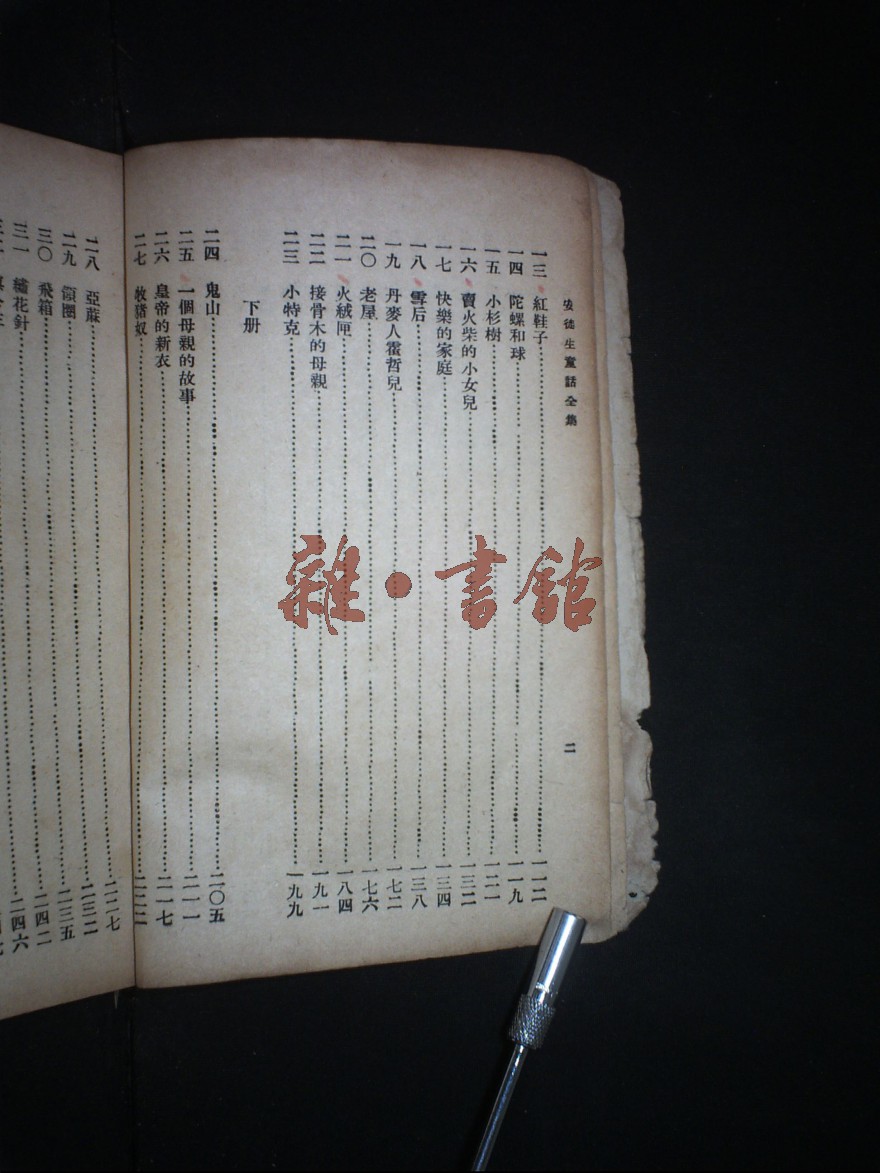 安徒生童話全集
二
一三 紅鞋子 一一二
一四 陀螺和球 一一九
一五 小杉樹 一二一
一六 賣火柴的小女兒 一三二
一七 快樂的家庭 一三四
一八 雪后 一三八
一九 丹麥人霍哲兒 一七二
二〇 老屋 一七六
二一 火絨匣 一八四
二二 接骨木的母親 一九一
二三 小特克 一九九
下册
二四 鬼山 二〇五
二五 一個母親的故事 二一一
二六 皇帝的新衣 二一七
二七 牧豬奴 二二二
二八 亞蔴 二二七
二九 領圈 二三二
三〇 飛箱 二三五
三一 繡花針 二四二
二四六
雜·書館